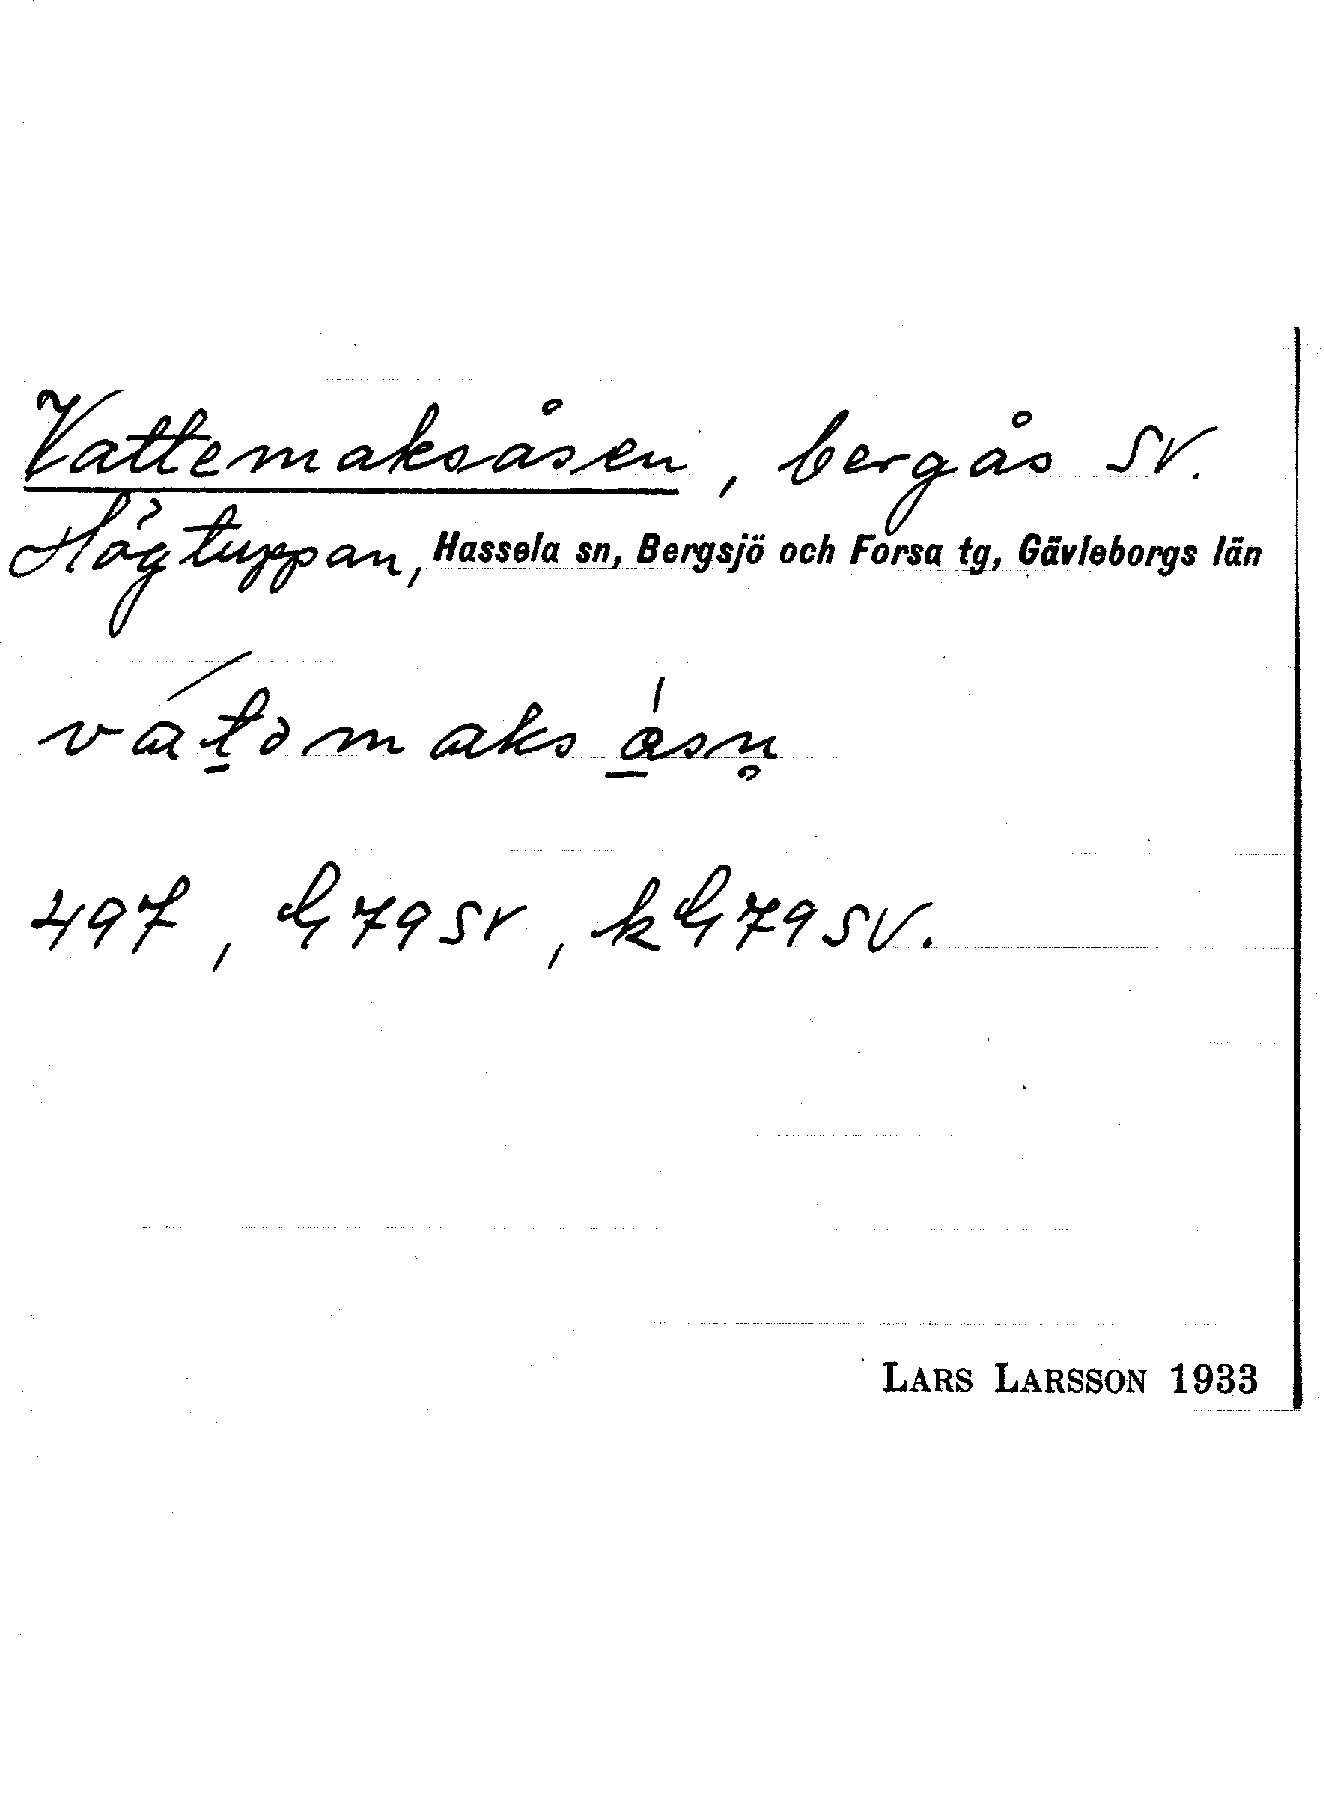 Vattemaksåsen, bergås SV.
Högtuppan, Hassela sn, Bergsjö och Forsa tg, Gävleborgs län
vát̠əmaks å̠sn̥
497, G79SV, kG79SV.
LARS LARSSON 1933